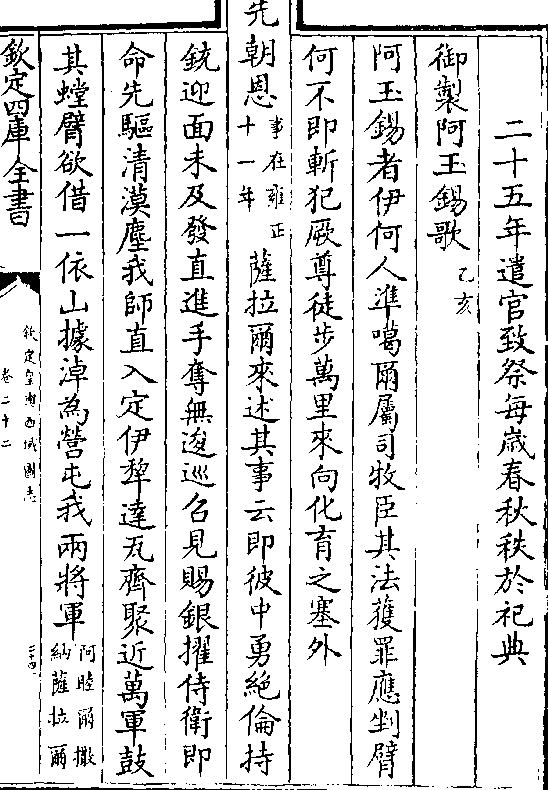 二十五年遣官致祭每歲春秋秩於祀典
御製阿玉錫歌乙亥
阿玉錫者伊何人準噶爾屬司牧臣其法獲罪應剉臂
何不即斬犯厥尊徒步萬里來向化育之塞外
先朝恩事在雍正十一年薩拉爾來述其事云即彼中勇絶倫持
銃迎面未及發直進手奪無逡巡召見賜銀擢侍衛即
命先驅清漠塵我師直入定伊犂達瓦齊聚近萬軍鼓
其螳臂欲借一依山據淖為營屯我兩將軍阿睦爾撒納薩拉爾
欽定四庫全書
欽定皇輿西域圖志
卷二十二
二十四